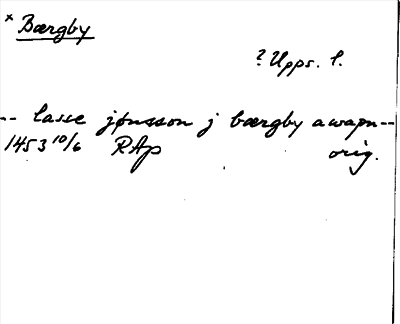 × Bærgby
? Upps. l.
-- lasse jønsson j bærgby awapn--
1453 10/6 RAp orig.